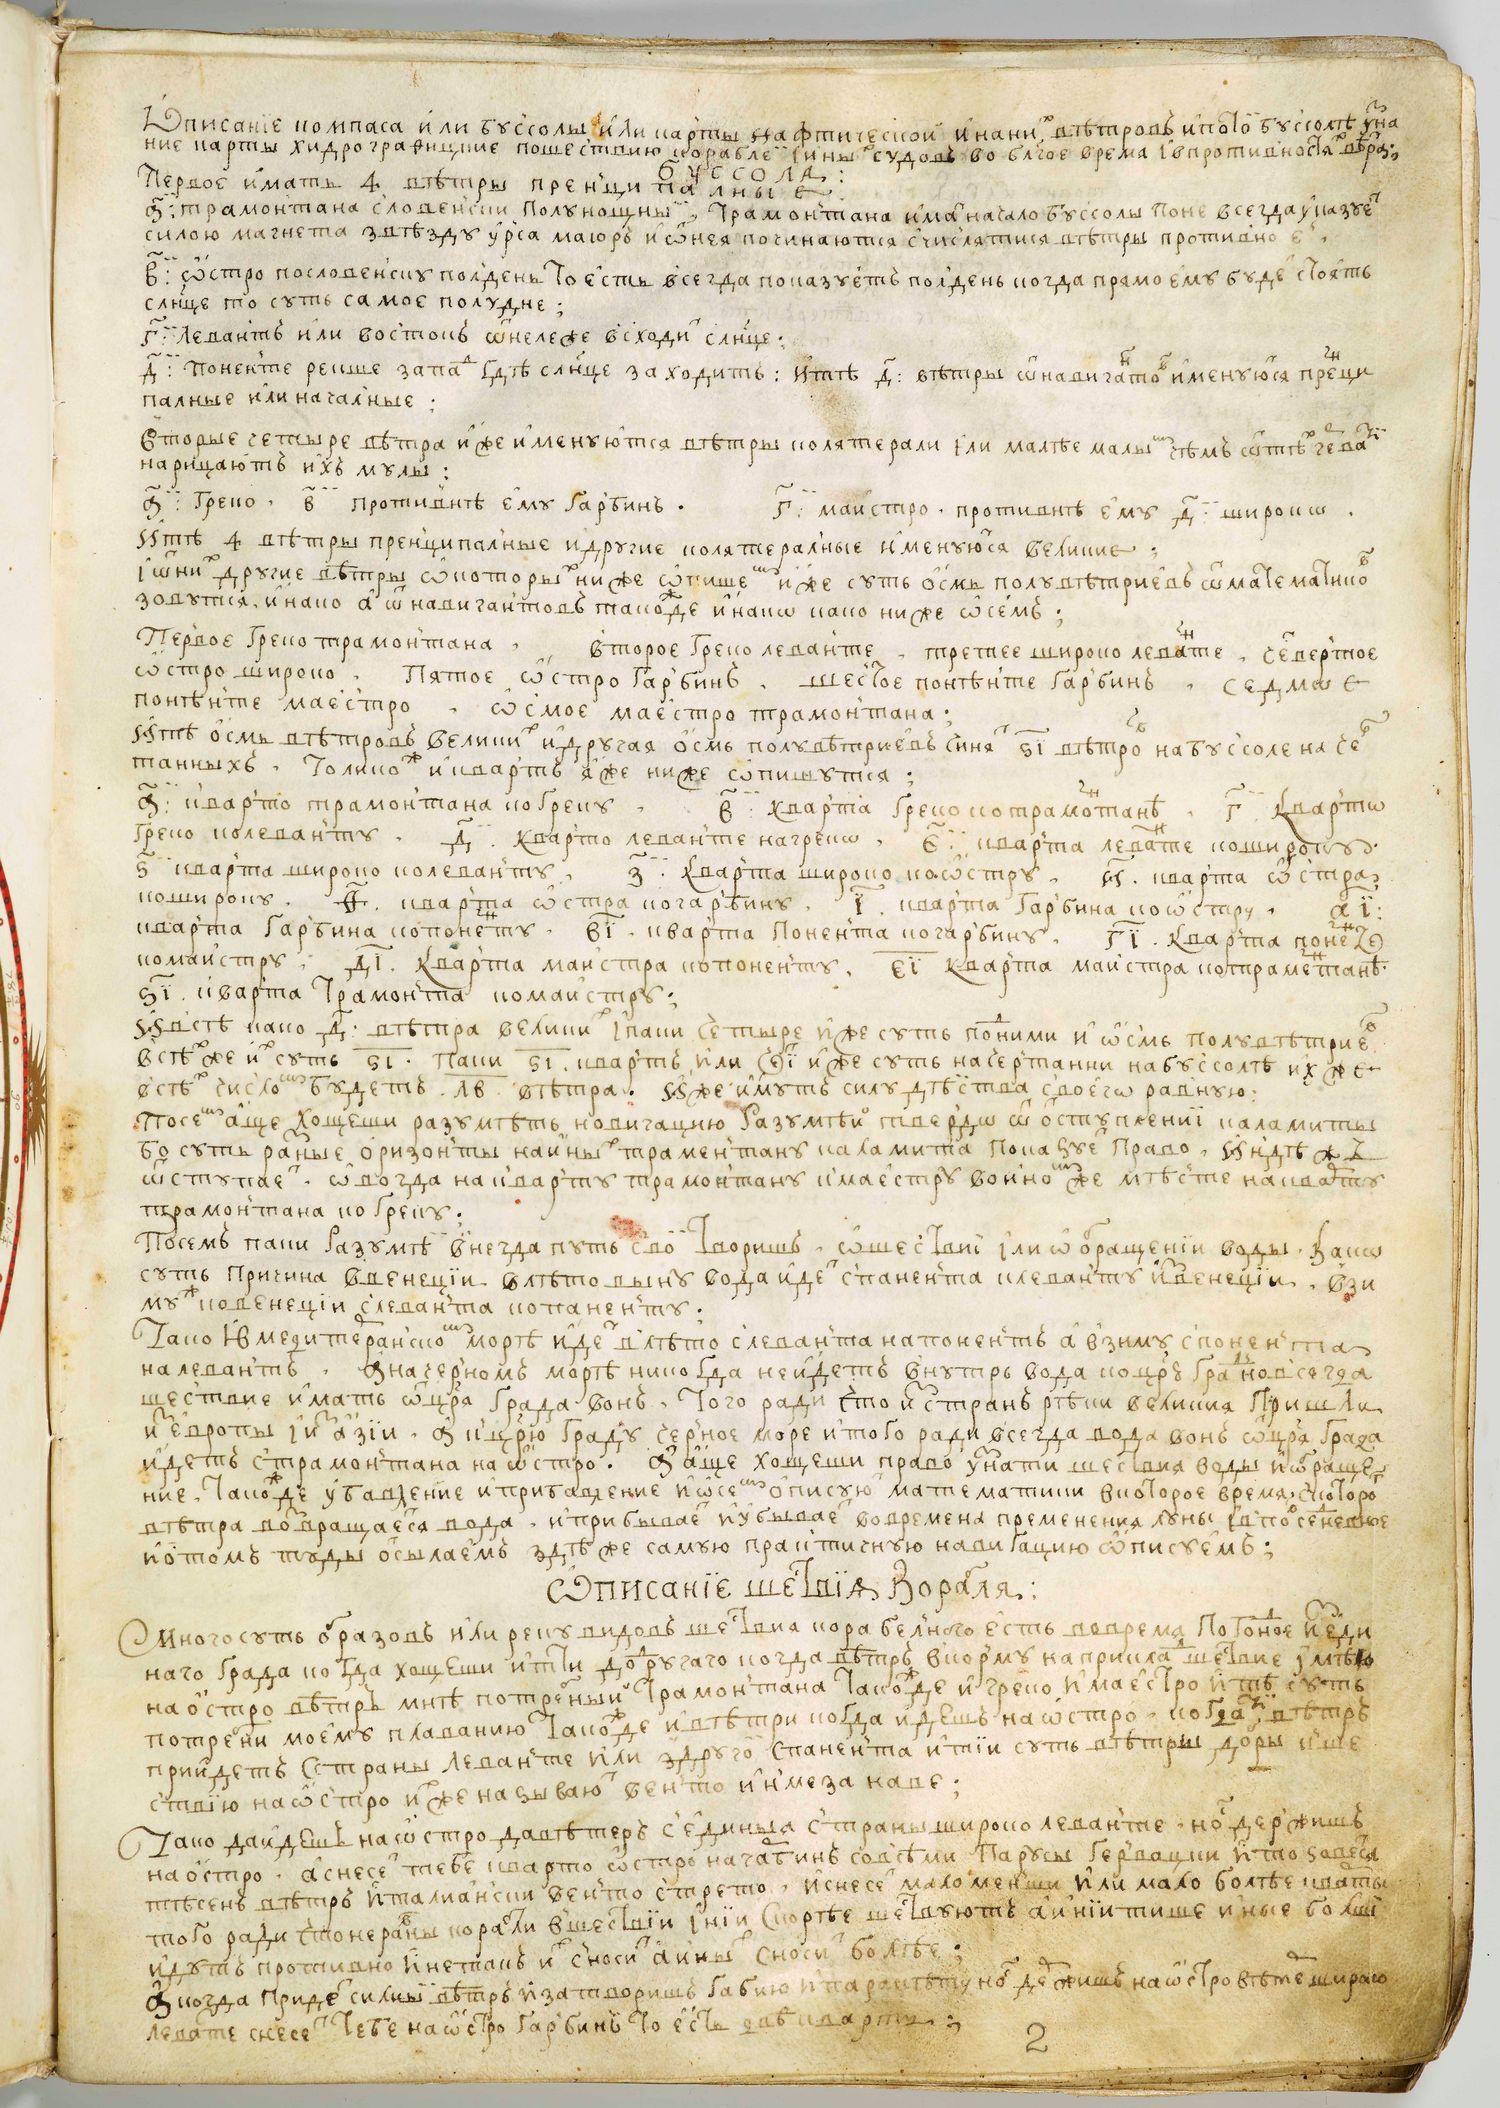 Ѡписанїе компаса и҆ли буссолы и҆ли карты наѵтической и҆ наниⷯ вѣтровъ и по той буссолѣ ᲂу҆зна
ние карты хидрографицкие по шествию кораблей и ины судовъ во бл҃гое время і в противностяⷯ вѣтра:
БУССОЛА:
Первое и҆мать 4 вѣтры пренципалные
а҃: трамонтана словенски полунощныⷨ, Трамонтана и҆ма начало буссолы поне всегда ᲂу҆казуеⷮ
силою магнета звѣзду ᲂу҆рса маюръ и ѿ нея починаются счислятися вѣтры противно еⷨ.
в҃: ѡ҆стро по словенску полдень То есть всегда показуетъ полдень когда прямо ему будеⷮ стоять
слн҃це то суть самое полудне;
г҃: Левантъ или востокъ ѿнележе всходиⷮ слн҃це;
д҃: Поненте рекше запаⷣ гдѣ слн҃це заходитъ: И тѣ д҃: вѣтры ѿ навигантоⷡ именуюⷭся пренци
палные или началные;
Вторые четыре вѣтра иже именуются вѣтры колятерали или малѣе малы чѣмъ ѿ тѣⷯ
нарицаютъ ихъ мулы;
а҃: Греко. в҃ противнѣ ему Гарбинъ. г҃: маистро. противнѣ ему д҃: широкѡ.
И тѣ 4 вѣтры пренципалные и другие колятералные именуюⷭся великие;
і ѿ ниⷯ другие вѣтры ѡ которыⷯ ниже ѡпишеⷨ иже суть осмь полувѣтриевъ ѿ маТематикоⷡ
зовутся, инако а ѿ навигантовъ такоⷤде инакѡ како ниже ѡ семъ;
Первое Греко трамонтана. второе Греко леванте. третее широко леванте. Четвертое
ѡстро широко. Пятое ѡстро Гарбинъ. шестое понѣнте Гарбинъ. седмѡе
понѣнте маестро. ѡсмое маестро трамонтана;
И тѣ осмь вѣтровъ великиⷯ и другая осмь полувѣтриевъ чиняⷮ ѕ҃і вѣтроⷡ на буссоле наче
танныхъ. Толикоⷤ и квартъ яже ниже ѡпишутся;
а҃: кварто трамонтана ко Греку. в҃: кварта Греко ко трамонтанѣ. г҃ Квартѡ
Греко ко леванту. д҃. Кварто леванте на грекѡ. е҃: кварта леванте ко широку.
ѕ҃ кварта широко ко леванту. з҃: Кварта широко ко ѡстру. и҃. кварта ѡстра
ко широку. ѳ҃. кварта ѡстра ко гарбину. і҃. кварта Гарбина ко ѡстру. а҃і:
кварта Гарбина ко поненту. в҃і. кварта Понента ко гарбину. г҃і. Кварта понента
ко маистру; д҃і. Кварта маистра ко поненту. е҃і Кварта маистра ко трамонтанѣ.
ѕ҃і. кварта Трамонта ко маистру;
И вѣстѣ како д҃: вѣтра великиⷯ і паки четыре иже суть под ними и ѡсмь полувѣтриеⷡ
всѣⷯже иⷯ суть ѕ҃і. Паки ѕ҃і. квартъ или иже суть начертанни на буссолѣ ихже
всѣⷯ число будетъ. л҃в вѣтра. Иже имутъ силу дѣиства своегѡ равную;
Посеⷨ аще хощеши разумѣть новигацию Разумѣй твердѡ ѿ оступлениї каламиты
бо суть разные оризонты на иныⷯ трамонтану каламита показуеⷮ Право. Индѣ же
ѿступаеⷮ. Ѡвогда на кварту трамонтану к маестру во иноⷨже мѣсте на кварту
трамонтана ко Греку;
Посемъ паки Разумѣй внегда путь свой Твориши. ѡ шествиї или ѡбращениїи воды. Какѡ
суть Причина в венециїи в лѣто выну вода идеⷮ с панента к леванту к венециїи. в зи
муⷤ ко венециїи с леванта ко паненту;
Тако и в медитеранскоⷨ морѣ идеⷮ в лѣто с леванта на понентъ а в зиму с понента
на левантъ. А на черномъ морѣ никогда неидетъ внутрь вода ко цр҃ю граⷣ но всегда
шествие имать ѿ цр҃я града вонъ. Того ради что и странъ рѣки великия Пришли
и европы и азїи. А к цр҃ю граду черное море и того ради всегда вода вонъ ѿ цр҃я града
идетъ с трамонтана на ѡстро. А аще хощеши право ᲂу҆знати шествия воды и ѡбраще
ние. Такоⷤде ᲂу҆бавление и прибавление и ѡ сеⷨ описую математики в которое время с которо
вѣтра возвращается вода. и прибываеⷮ и убываеⷮ во времена пременения луны
и о томъ туды осылаемъ здѣ же самую практичную навигацию ѡписуемъ;
Ѡписанїе шестⷡїя Корабля:
Много суть ѡбразовъ или реку видовъ шествия корабелного есть во время Погоⷣное из еди
наго Града когда хощеши итти до другаго когда вѣтръ в корму наприклаⷣ шествие имѣю
на остро вѣтръ мнѣ потребный Трамонтана Такоⷤде и греко и маестро и тѣ суть
потребни моему плаванию Такоⷤде и вѣтри когда идешъ на ѡстро. когда вѣтръ
прийдетъ С страны Леванте или з другой С панента и тїи суть вѣтры добры к ше
ствїю на ѡстро иже называюⷮ венто ин меза наве;
Тако да идешъ на ѡстро да вѣтеръ с единыя страны широко леванте. но держишъ
на остро. а снесеⷮ тебе кварто ѡстро на гарбинъ со всѣми Парусы Гервацки и то зовеⷮся
тѣсенъ вѣтръ Италиански венто стрето. И снесеⷮ мало менши Или мало болѣе кварты
того ради что неравны корабли в шествїи їнїи Скорѣе шествуютъ а инїи тише иные болши
идутъ противно и нетакъ иⷯ сносиⷮ а иныⷯ сносиⷮ болѣе;
А когда Приидеⷮ силный вѣтръ и затворишъ Габию и парамѣту но держишъ на ѡстро вѣтеⷬ широко
леванте снесеⷮ Тебе на ѡстро Гарбинъ То есть двѣ кварты;
2